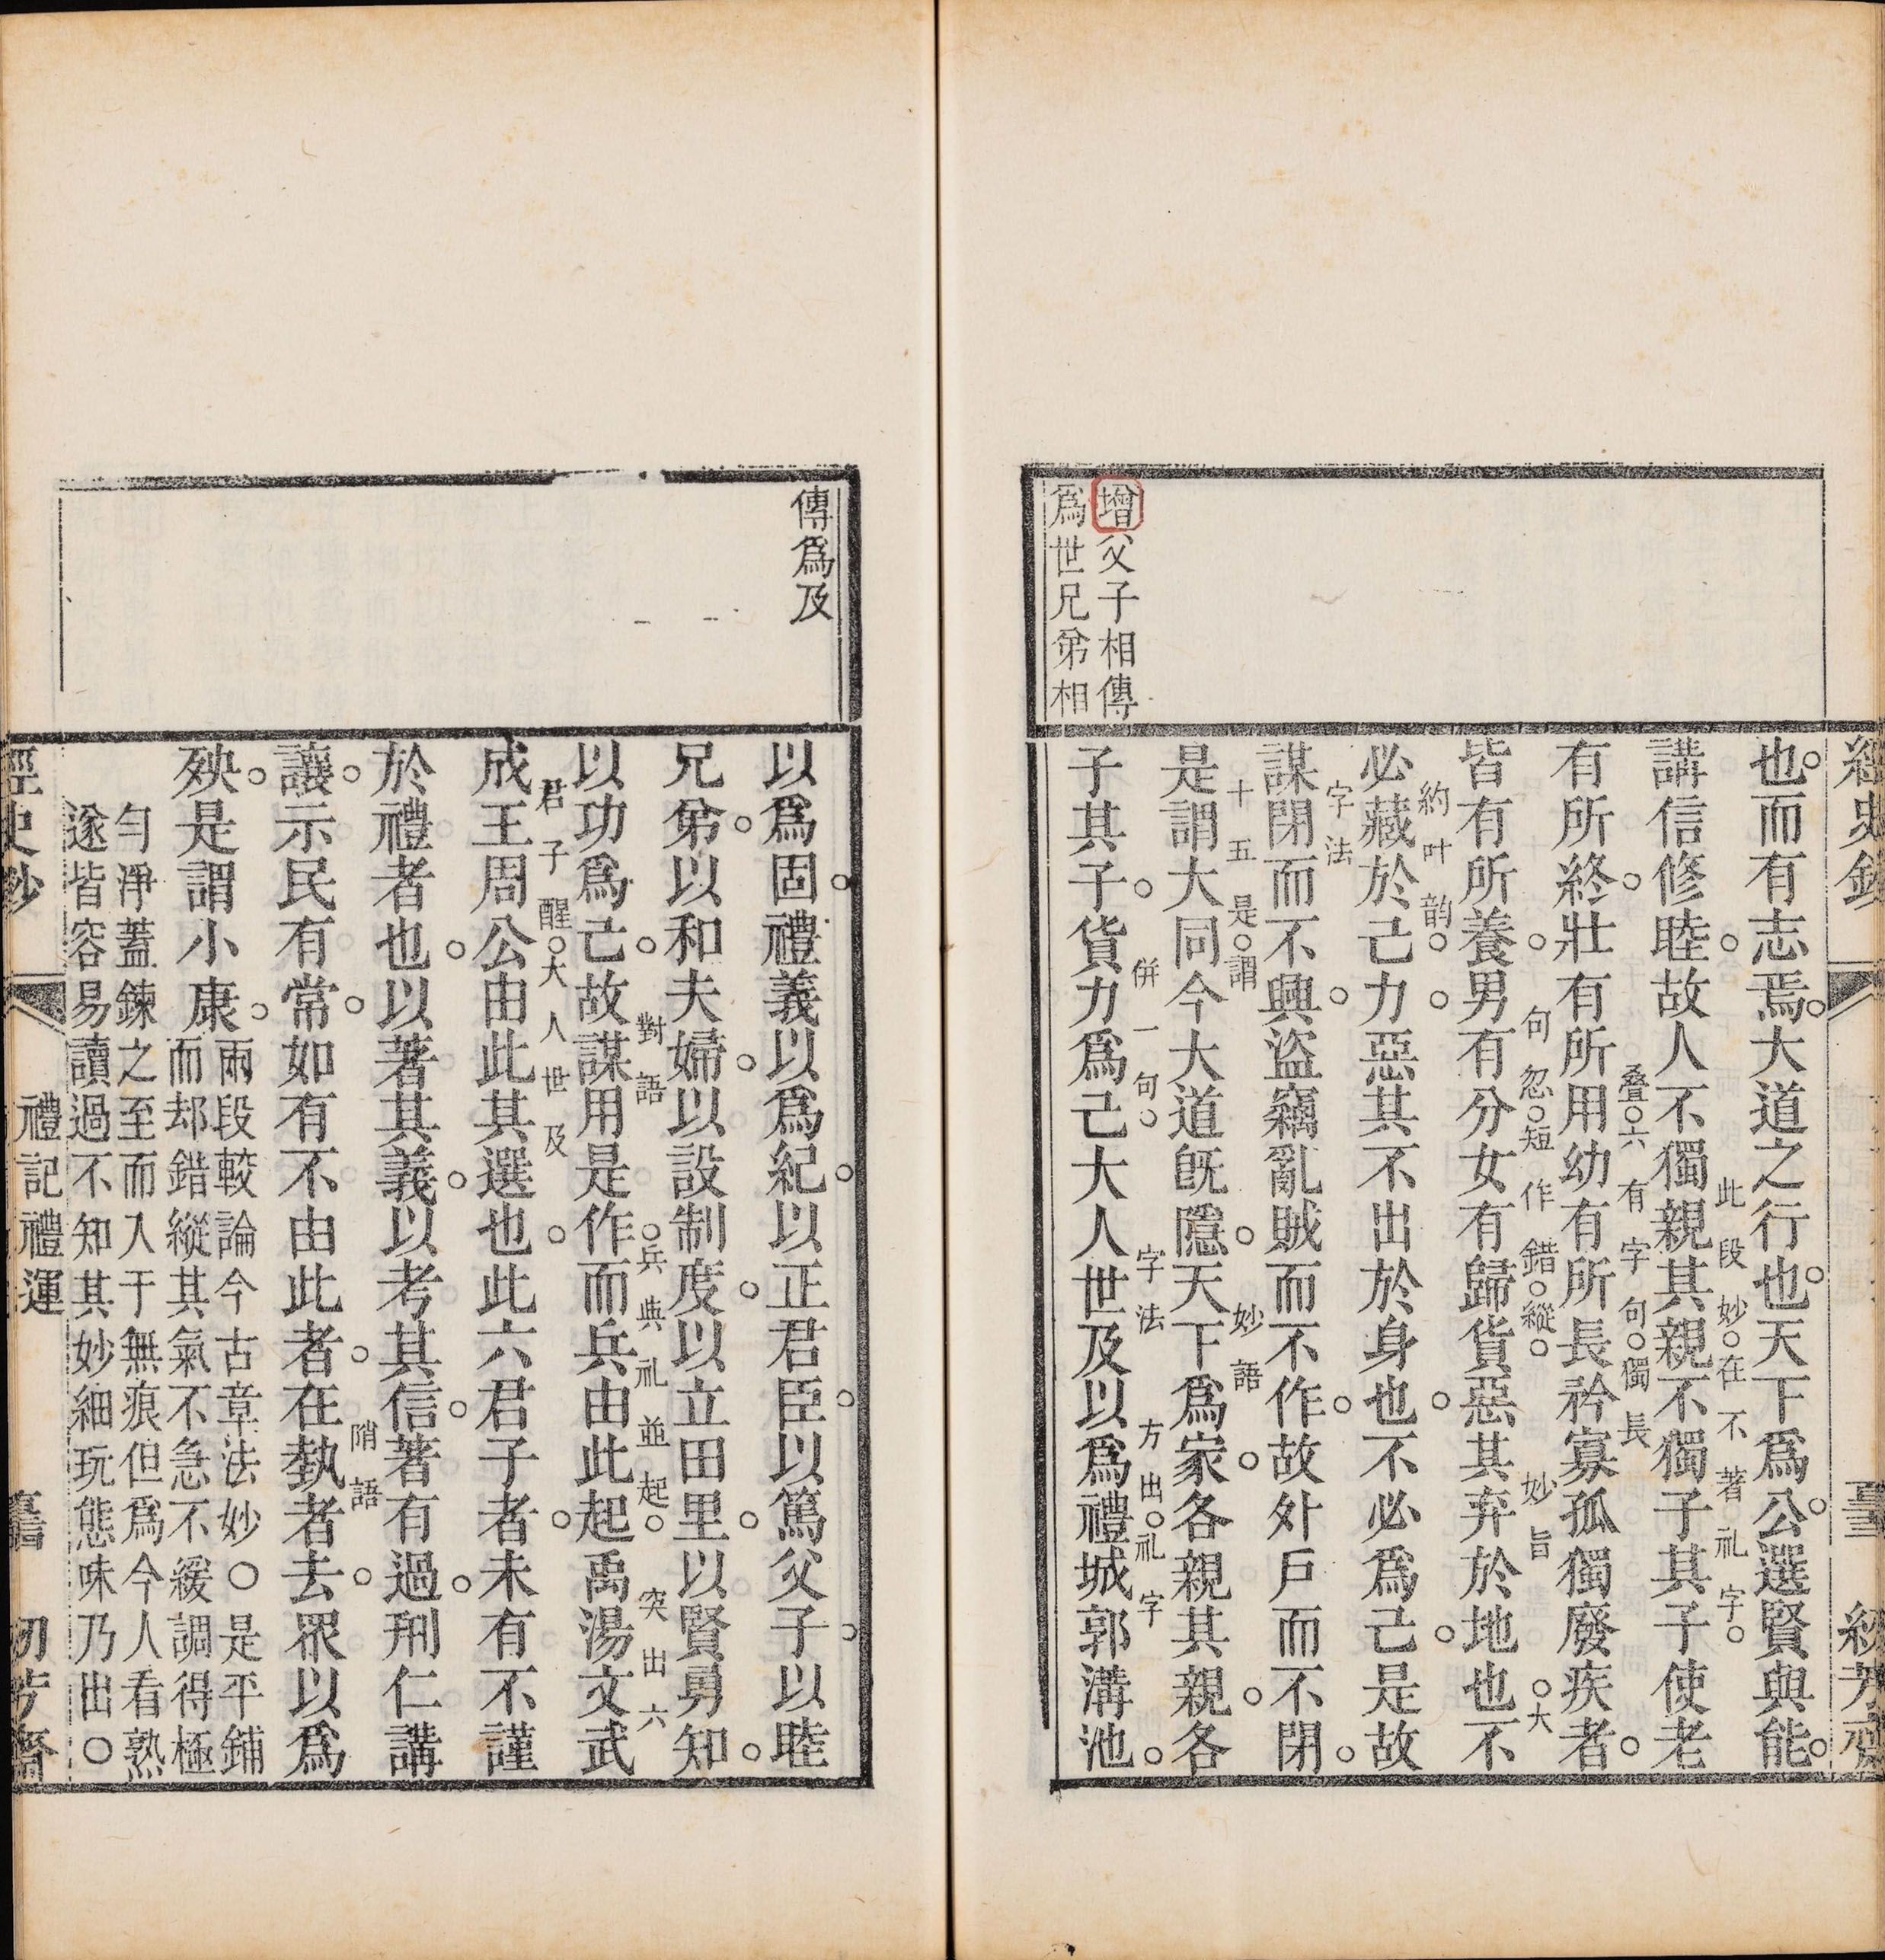 增父子相傳
爲世兄弟相
也而有志焉大道之行也天下爲公選賢與能
講信修睦故人不獨親其親不獨子其子使老
此段妙在不著礼字
有所終壯有所用幼有所長矜寡孤獨廢疾者
叠六有字句獨長
皆有所養男有分女有歸貨惡其弃於地也不
句忽短作錯縱 妙旨 大
必藏於己力惡其不出於身也不必爲己是故
約叶韵
謀閉而不興盜竊亂賊而不作故外戶而不閉
字法
是謂大同今大道旣隱天下爲家各親其親各
十五是謂 妙語
子其子貨力爲己大人世及以爲禮城郭溝池
併一句 字法 方出礼字
傳爲及
以爲固禮義以爲紀以正君臣以篤父子以睦
兄弟以和夫婦以設制度以立田里以賢勇知
以功爲己故謀用是作而兵由此起禹湯文武
對語 兵與礼並起 突出六
成王周公由此其選也此六君子者未有不謹
君子醒大人世及
於禮者也以著其義以考其信著有過刑仁講
讓示民有常如有不由此者在埶者去眾以爲
陗語
殃是謂小康
兩段較論今古章法妙○是平鋪
而却錯縱其氣不急不緩調得極
勻淨蓋鍊之至而入于無痕但爲今人看熟
遂皆容易讀過不知其妙細玩態味乃出○
經史鈔 禮記禮運 紉芳齋